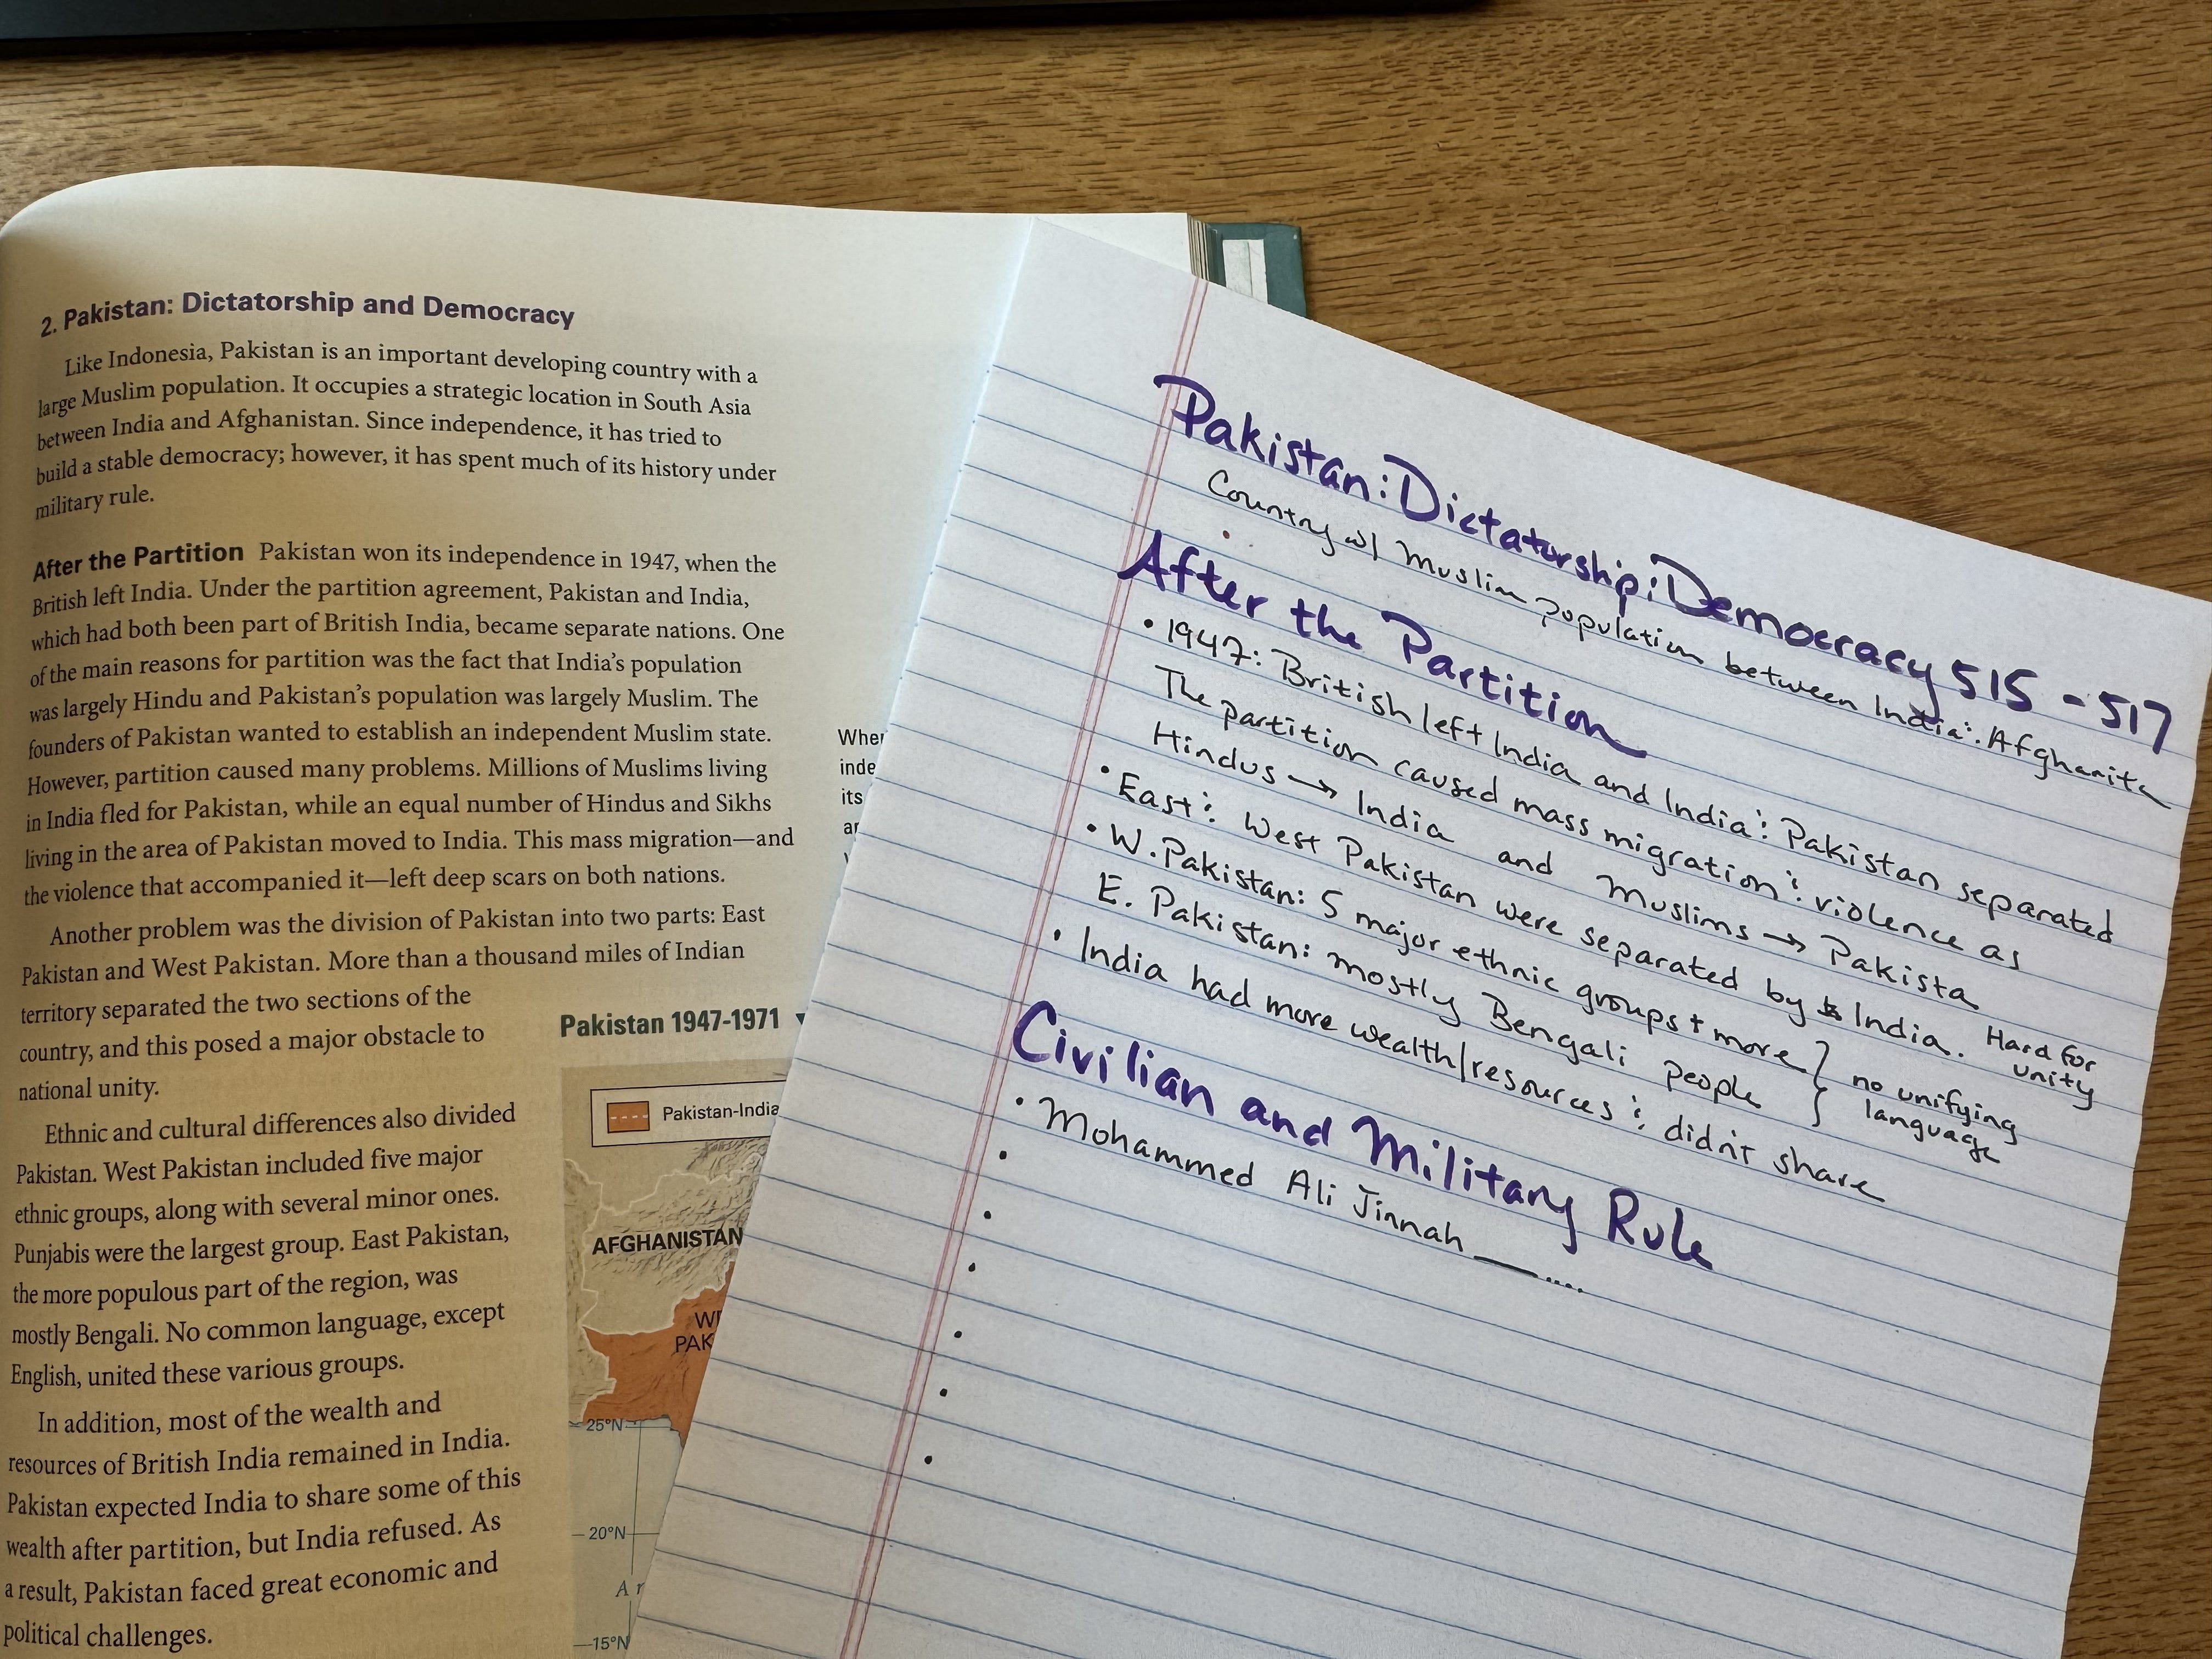 2. Pakistan: Dictatorship and Democracy
Like Indonesia, Pakistan is an important developing country with a
large Muslim population. It occupies a strategic location in South Asia
between India and Afghanistan. Since independence, it has tried to
build a stable democracy; however, it has spent much of its history under
military rule.
After the Partition Pakistan won its independence in 1947, when the
British left India. Under the partition agreement, Pakistan and India,
which had both been part of British India, became separate nations. One
of the main reasons for partition was the fact that India's population
was largely Hindu and Pakistan's population was largely Muslim. The
founders of Pakistan wanted to establish an independent Muslim state.
However, partition caused many problems. Millions of Muslims living
in India fled for Pakistan, while an equal number of Hindus and Sikhs
living in the area of Pakistan moved to India. This mass migration—and
the violence that accompanied it—left deep scars on both nations.
Another problem was the division of Pakistan into two parts: East
Pakistan and West Pakistan. More than a thousand miles of Indian
territory separated the two sections of the
country, and this posed a major obstacle to
national unity.
Ethnic and cultural differences also divided
Pakistan. West Pakistan included five major
ethnic groups, along with several minor ones.
Punjabis were the largest group. East Pakistan,
the more populous part of the region, was
mostly Bengali. No common language, except
English, united these various groups.
In addition, most of the wealth and
resources of British India remained in India.
Pakistan expected India to share some of this
wealth after partition, but India refused. As
a result, Pakistan faced great economic and
political challenges.
inde
its
Pakistan 1947-1971
Pakistan-India
AFGHANISTAN
PAK
25°N
20°N
15°N
Pakistan: Dictatorship & Democracy 515 - 517
Country w/ Muslim population between India & Afghanita
After the Partition
• 1947: British left India and India & Pakistan separated
The partition caused mass migration & violence as
Hindus → India and Muslims → Pakista
• East & West Pakistan were separated by India. Hard for
unity
• W. Pakistan: 5 major ethnic groups + more
E. Pakistan: mostly Bengali people
} no unifying
language
• India had more wealth/resources & didn't share
Civilian and Military Rule
• Mohammed Ali Jinnah ____ ....